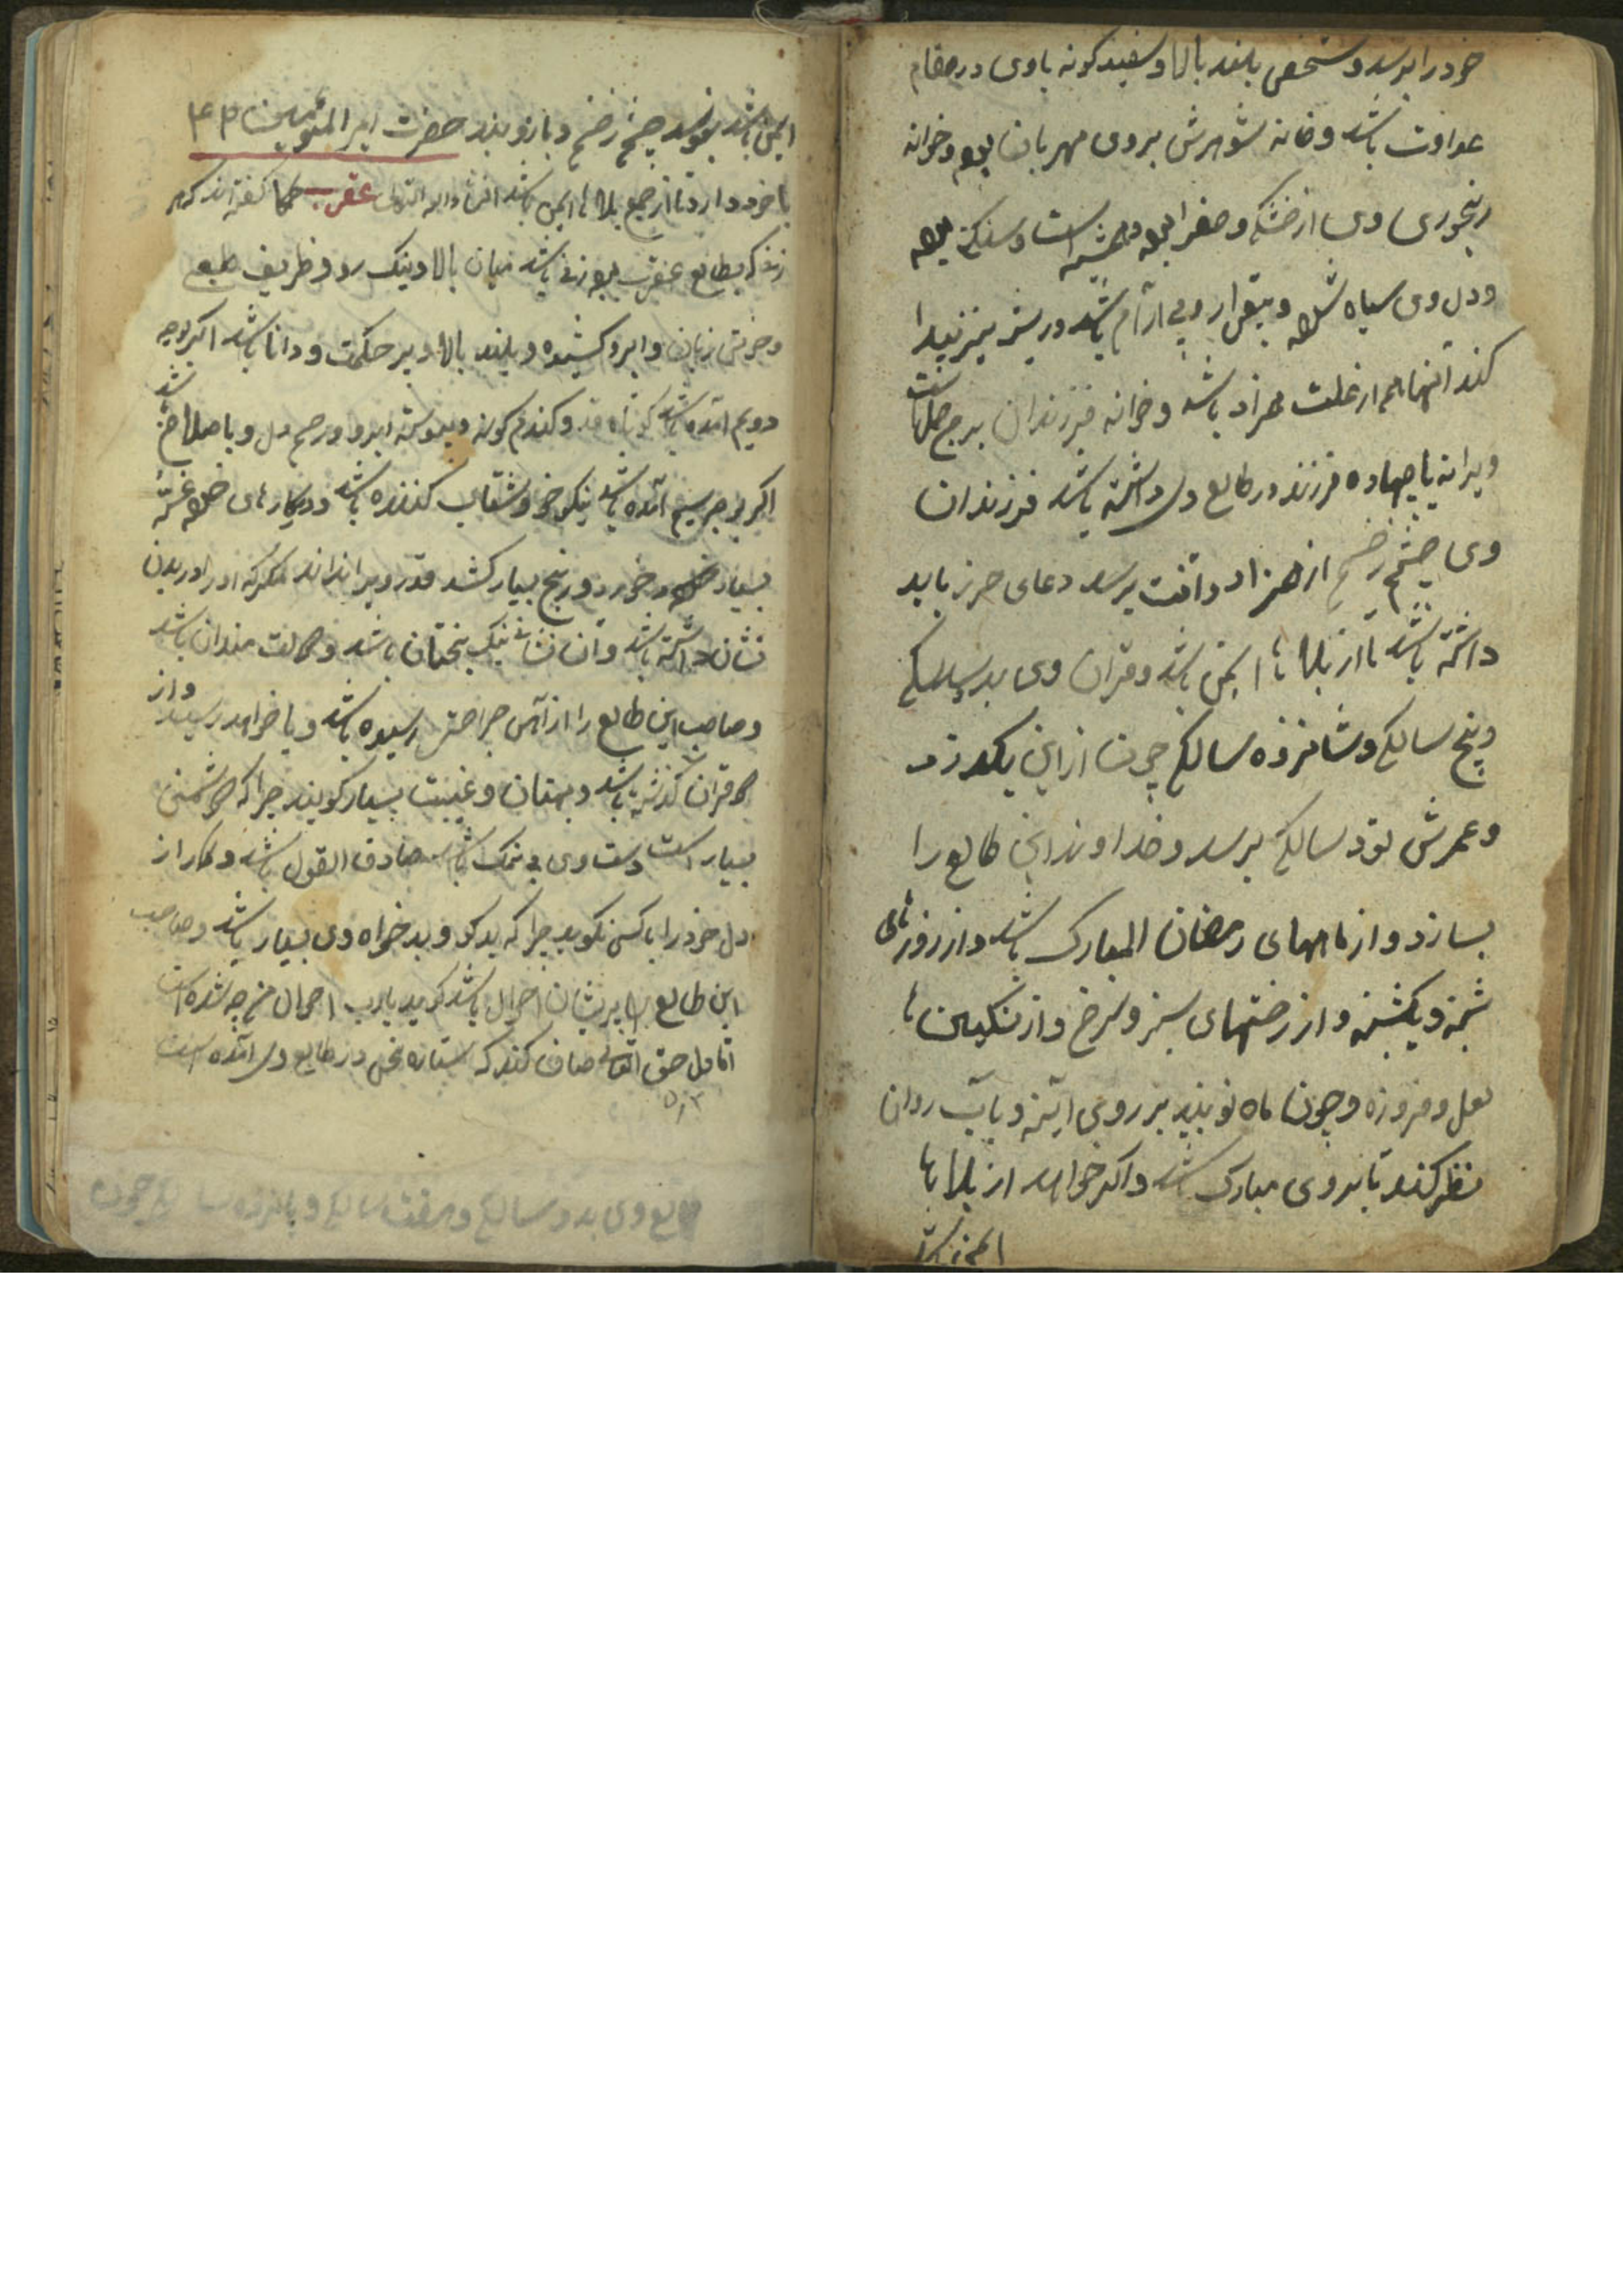 خود را برسد و شخصی بلند بالا و سفید کونه با وی در مقام
عداوت باشد و خانه شوهرش بر وی مهربان بود و خزانه
رنجوری وی از خشکی و صفرا بود و است و سنکی بود
و دل وی سیاه شده و بیقرار و بی آرام باشد و ریش نیز پیدا
کند اینها هم از علت همزاد باشد و خزانه فرزندان برج است
و یرا نه یا چهاده فرزند در طالع وی داشته باشد فرزندان
وی چشم زخم از همزاد و آفت برسد دعای حرز باید
داشته باشد تا از بلاها ایمن باشد و قران وی بد سالکی
و پنج سالکی و شانزده سالکی چون از این بکذرد
و عمرش نود سالکی برسد و خداوند این طالع را
بسازد و از ماههای رمضان المبارک باشد و از روزهای
شنبه و یکشنبه و از رختهای سبز و سرخ و از نکین ها
لعل و فروزه و چون ماه نو بیند بر روی آینه و یا آب روان
نظر کند تا بر وی مبارک باشد و اکر خواهد از بلاها
ایمن باشد
ایمن باشد بنویسد چشم زخم و بازو بند حضرت امیر المؤمنین ۴۳
با خود دارد تا از جمیع بلاها ایمن باشد انشاء الله تعالی عقرب حکما کفته اند که هر
زنی که بطالع عقرب بود زنی باشد میان بالا و نیک رو و ظریف طبع
و خوش زبان و ابرو کشیده و بلند بالا و پر حکمت و دانا باشد اکر بوجه
دویم آمده باشد کوتاه قد و کندم کونه و پیوسته ابرو و رحیم دل و با صلاح باشد
اکر بوجه سیم آمده باشد نیکو خو و شتاب کننده باشد و در کارهای خود غصه
بسیار خورد و رنج بسیار کشد قدر ویرا نداند مکر که او را در بدن
نشان داشته باشد و آن نشان نیک بختان باشد و دولت مندان باشد
و صاحب این طالع را از آتش جراحتی رسیده باشد و یا خواهد رسید و از
قران کذشته باشد و بهتان و غیبت بسیار کویند چرا که دشمنی
بسیار است دست وی بی نمک باشد صادق القول باشد و کار از
دل خود را با کسی نکوید چرا که بد کو و بد خواه وی بسیار باشد و صاحب
این طالع پریشان احوال باشد کوید یا رب احوال من چه شده است
اما دل حق تعالی صاف کند که ستاره نحس در طالع وی آمده است
طالع وی بد و سالکی و هفت سالکی و پانزده سالکی چون